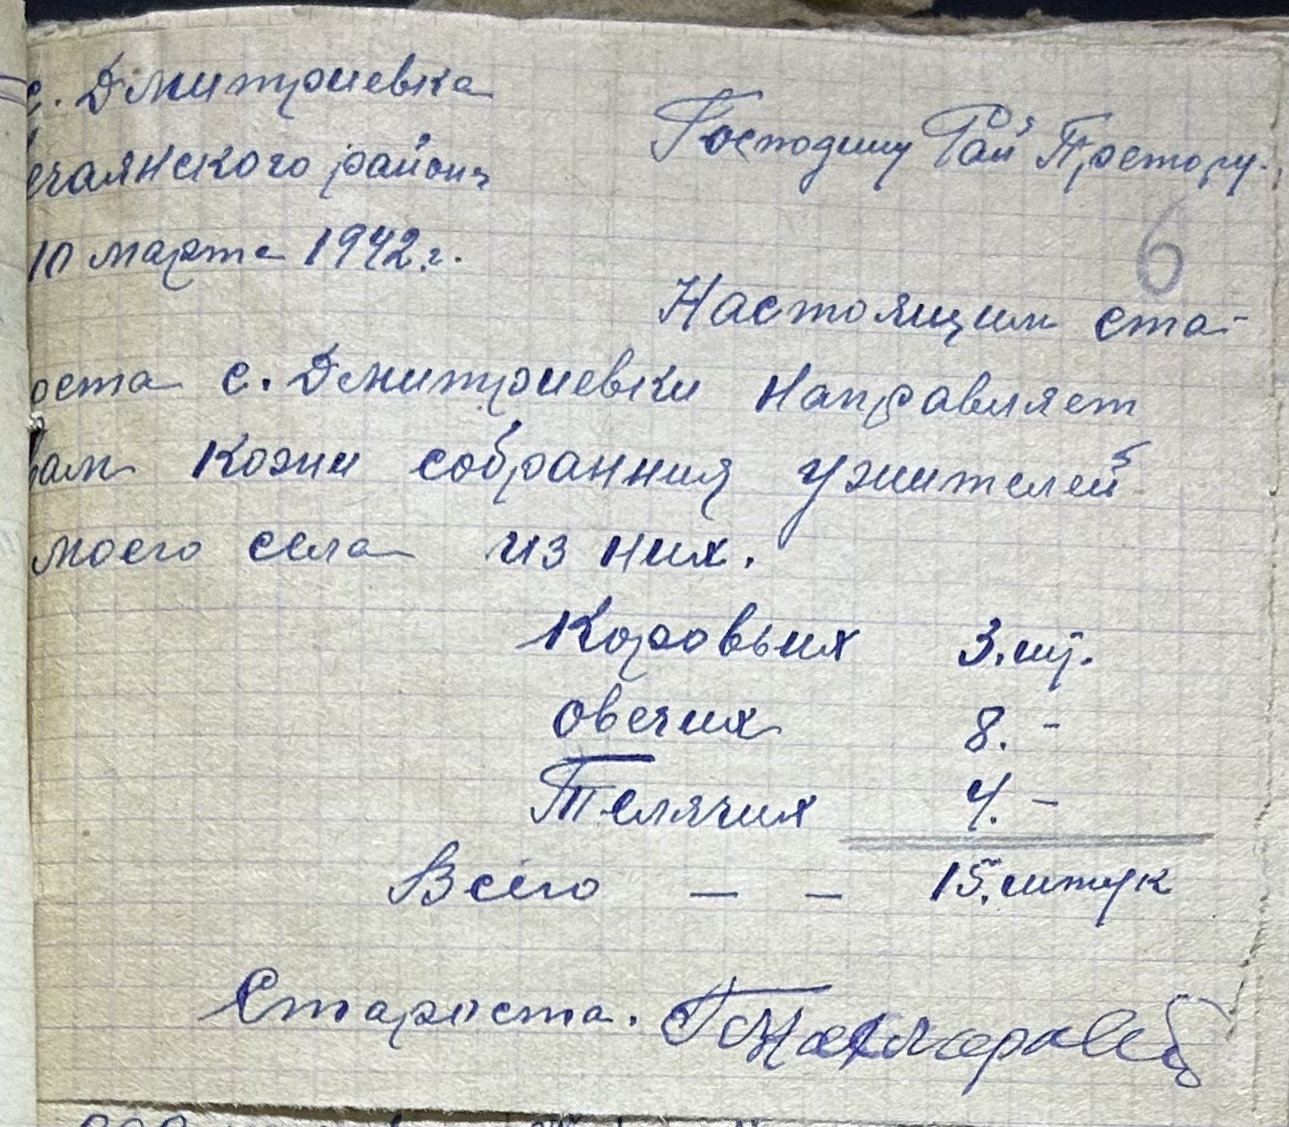 с. Дмитриевка
ечаянского района
10 марта 1942 г.
Господину Рай Претору.
6
Настоящим ста-
оста с. Дмитриевки направляет
вам кожи собранния у жителей
моего села из них.
Коровьих 3. шт.
овечих 8. -
Телячих 4. -
Всего - - 15. штук
Староста.